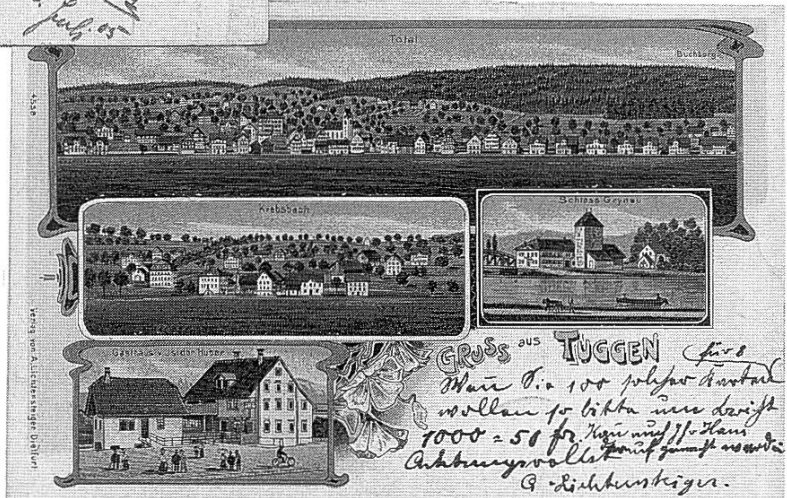 Juli 05
Total
Buchberg
4538
Krebsbach
Schloss Grynau
Verlag von A. Lichtensteiger Dietfurt
Gasthaus v. Isidor Huber
GRUSS aus TUGGEN
für 8
Wenn Sie 100 solcher Karten
wollen so bitte um Bericht
1000 = 50 fr. Kann auch Ihr Haus
Achtungsvollst drauf gemacht werden
A. Lichtensteiger.